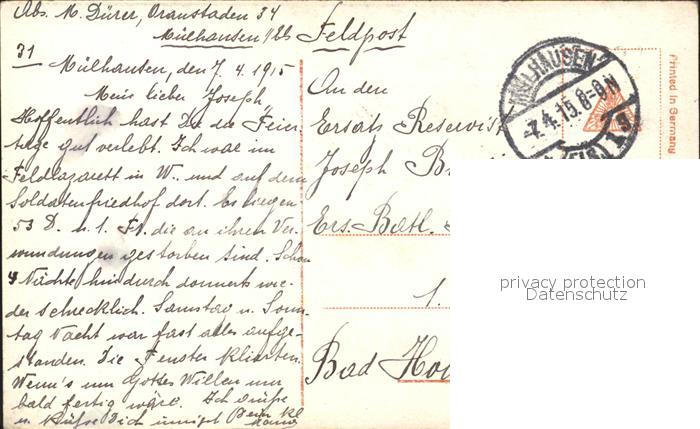 Abs. M. Dürer, Oranstaden 34
Mülhausen i/Els
Feldpost
31
Mülhausen, den 7. 4. 1915
Mein lieber Joseph
Hoffentlich hast Du die Feier-
tage gut verlebt. Ich war im
Feldlazarett in W. und auf dem
Soldatenfriedhof dort. Es liegen
53 D. u. 1. Fr. die an ihren Ver-
wundungen gestorben sind. Schon
4 Nächte hindurch donnerts wie-
der schrecklich. Samstag u. Sonn-
tag Nacht war fast alles aufge-
standen. Die Fenster klirrten.
Wenn's um Gottes Willen nur
bald fertig wäre. Ich grüße
u. küsse Dich innigst Dein kl
An den
Ersatz Reservist
Joseph
Ers. Batl.
1.
Bad
MÜLHAUSEN
-7.4.15.8-9N
Printed in Germany
privacy protection
Datenschutz